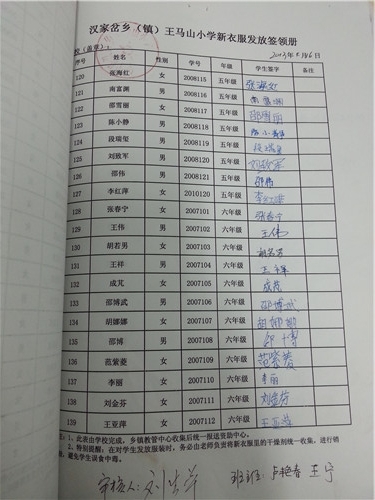 汉家岔乡（镇）王马山小学新衣服发放签领册
校（盖章）： 2013年 月16日
序号 姓名 性别 学号 年级 学生签字 备注
120 张海红 女 2008115 五年级 张海红
121 南富渊 男 2008116 五年级 南富渊
122 邵雪丽 女 2008117 五年级 邵雪丽
123 陈小静 男 2008118 五年级 陈小静
124 段瑞玺 男 2008119 五年级 段瑞玺
125 刘致军 男 2008120 五年级 刘致军
126 邵伟 男 2008121 五年级 邵伟
127 李红萍 女 2010120 五年级 李红萍
128 张春宁 女 2007101 六年级 张春宁
129 王伟 男 2007102 六年级 王伟
130 胡若男 女 2007103 六年级 胡若男
131 王祥 男 2007104 六年级 王祥
132 成芃 女 2007105 六年级 成芃
133 邵博武 男 2007106 六年级 邵博武
134 胡娜娜 女 2007107 六年级 胡娜娜
135 邵博 男 2007108 六年级 邵博
136 范紫菱 女 2007109 六年级 范紫菱
137 李丽 女 2007110 六年级 李丽
138 刘金芬 女 2007111 六年级 刘金芬
139 王亚萍 女 2007112 六年级 王亚萍
注：1、此表由学校完成，乡镇教管中心收集后统一报送资助中心。
2、特别提醒：在对学生发放服装时，务必由老师负责将新衣服里的干燥剂统一收集，进行销
毁，避免学生误食中毒。
审核人：刘 萍 班班：卢艳春 王宁